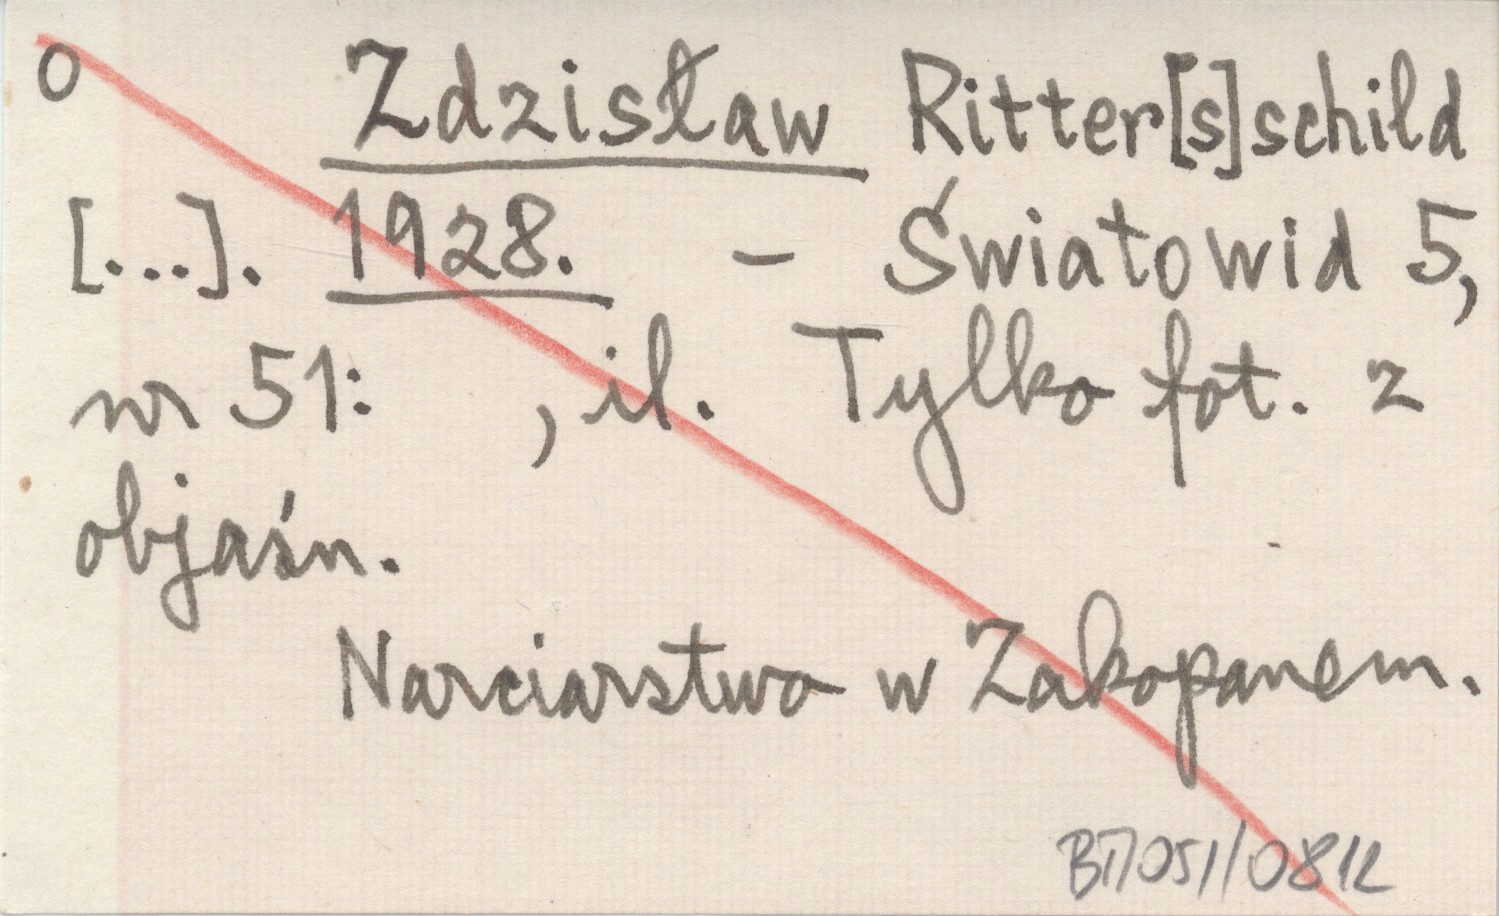 o Zdzisław Ritter[s]schild
[...]. 1928. - Światowid 5,
nr 51: , il. Tylko fot. z
objaśn.
Narciarstwo w Zakopanem.